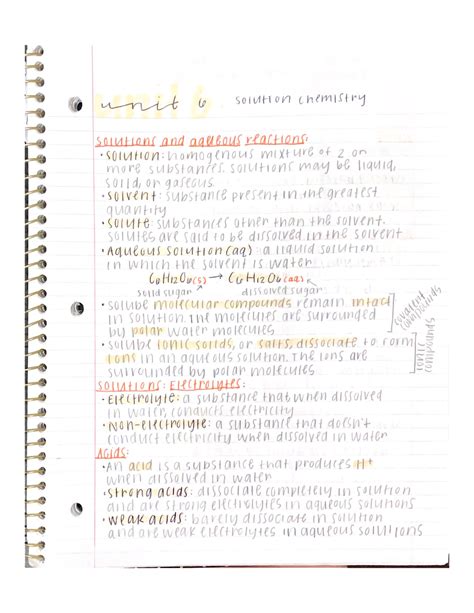 unit 6 solution chemistry
solutions and aqueous reactions:
• solution: homogenous mixture of 2 or
more substances. solutions may be liquid,
solid, or gaseous
• solvent: substance present in the greatest
quantity
• solute: substances other than the solvent.
solutes are said to be dissolved in the solvent
• Aqueous solution (aq): a liquid solution
in which the solvent is water
C6H12O6(s) → C6H12O6(aq)
solid sugar dissolved sugar
• soluble molecular compounds remain intact
in solution. The molecules are surrounded
by polar water molecules
covalent compounds
• soluble ionic solids, or salts, dissociate to form
ions in an aqueous solution. The ions are
surrounded by polar molecules
ionic compounds
solutions: Electrolytes:
• Electrolyte: a substance that when dissolved
in water, conducts electricity
• Non-electrolyte: a substance that doesn't
conduct electricity when dissolved in water
Acids:
• An acid is a substance that produces H+
when dissolved in water
• strong acids: dissociate completely in solution
and are strong electrolytes in aqueous solutions
• weak acids: barely dissociate in solution
and are weak electrolytes in aqueous solutions